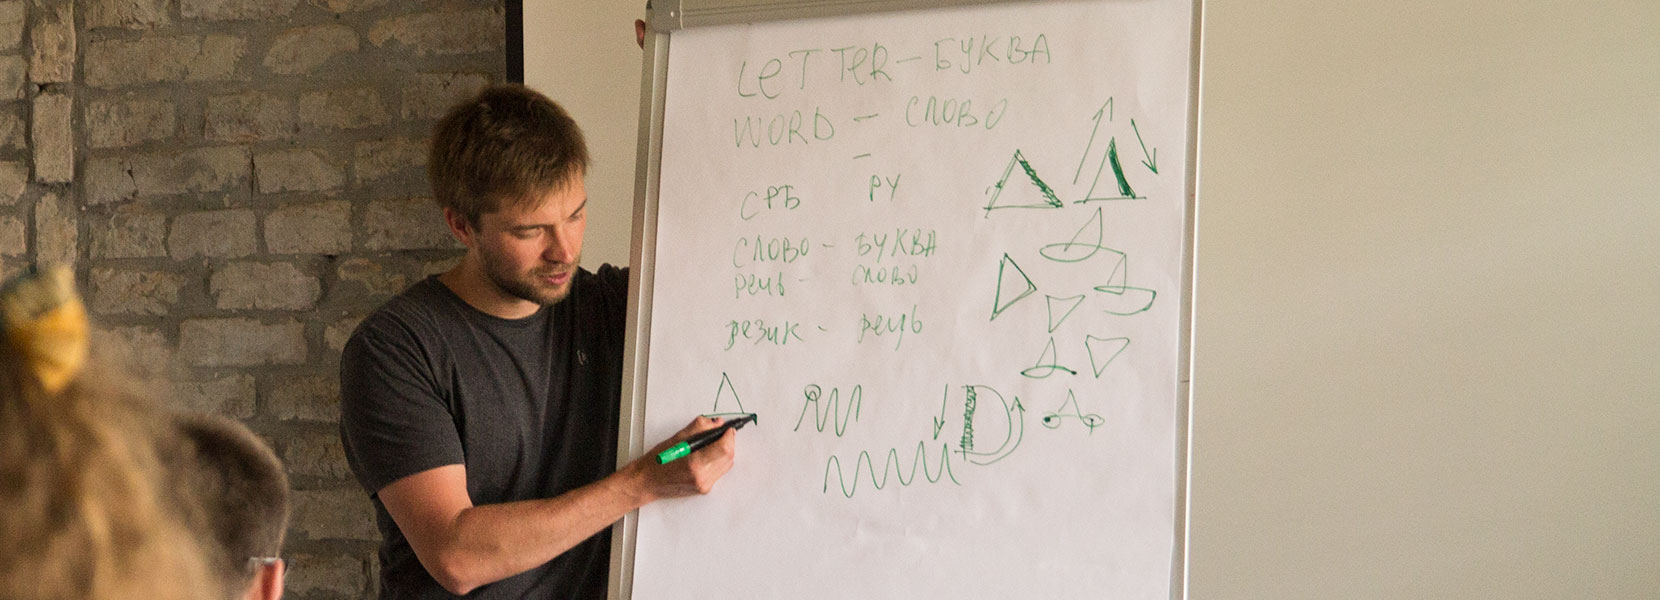 LeTTeR – БУКВА
WORD – СЛОВО
–
СРБ РУ
СЛОВО – БУКВА
речь – СЛОВО
язик – речь
D